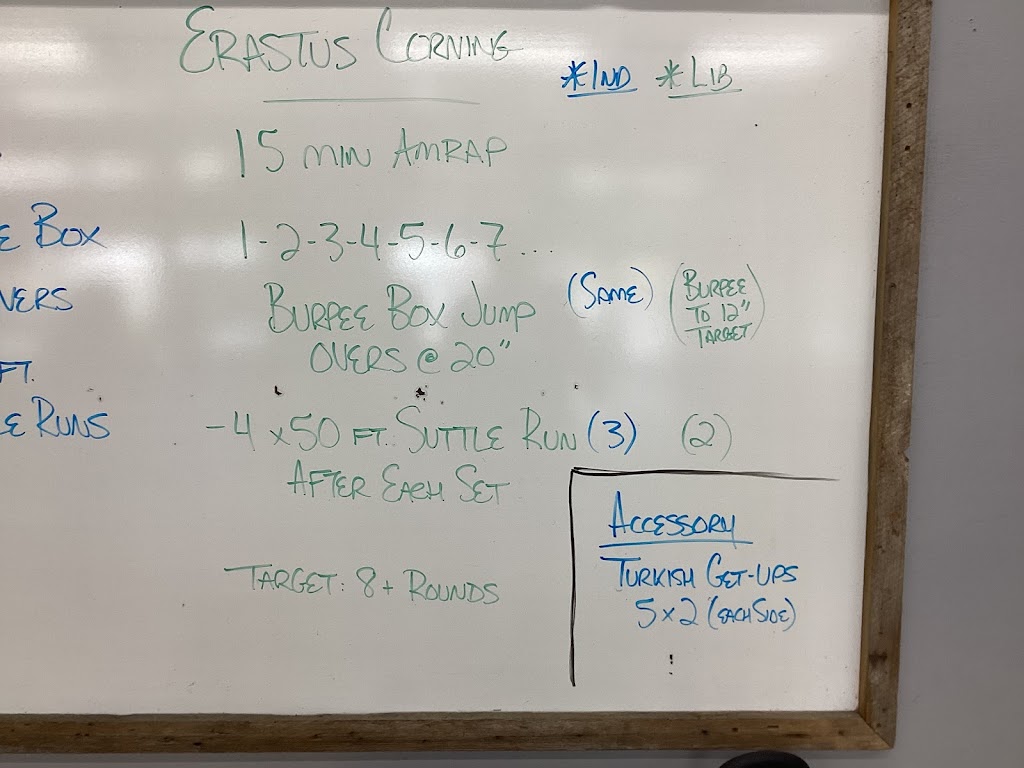 ERASTUS CORNING
*IND *LIB
15 MIN AMRAP
1-2-3-4-5-6-7...
BURPEE BOX JUMP
OVERS @ 20"
(SAME)
(BURPEE
TO 12"
TARGET)
-4 x 50 FT. SUTTLE RUN (3) (2)
AFTER EACH SET
TARGET: 8+ ROUNDS
E BOX
VERS
FT.
E RUNS
ACCESSORY
TURKISH GET-UPS
5 x 2 (EACH SIDE)